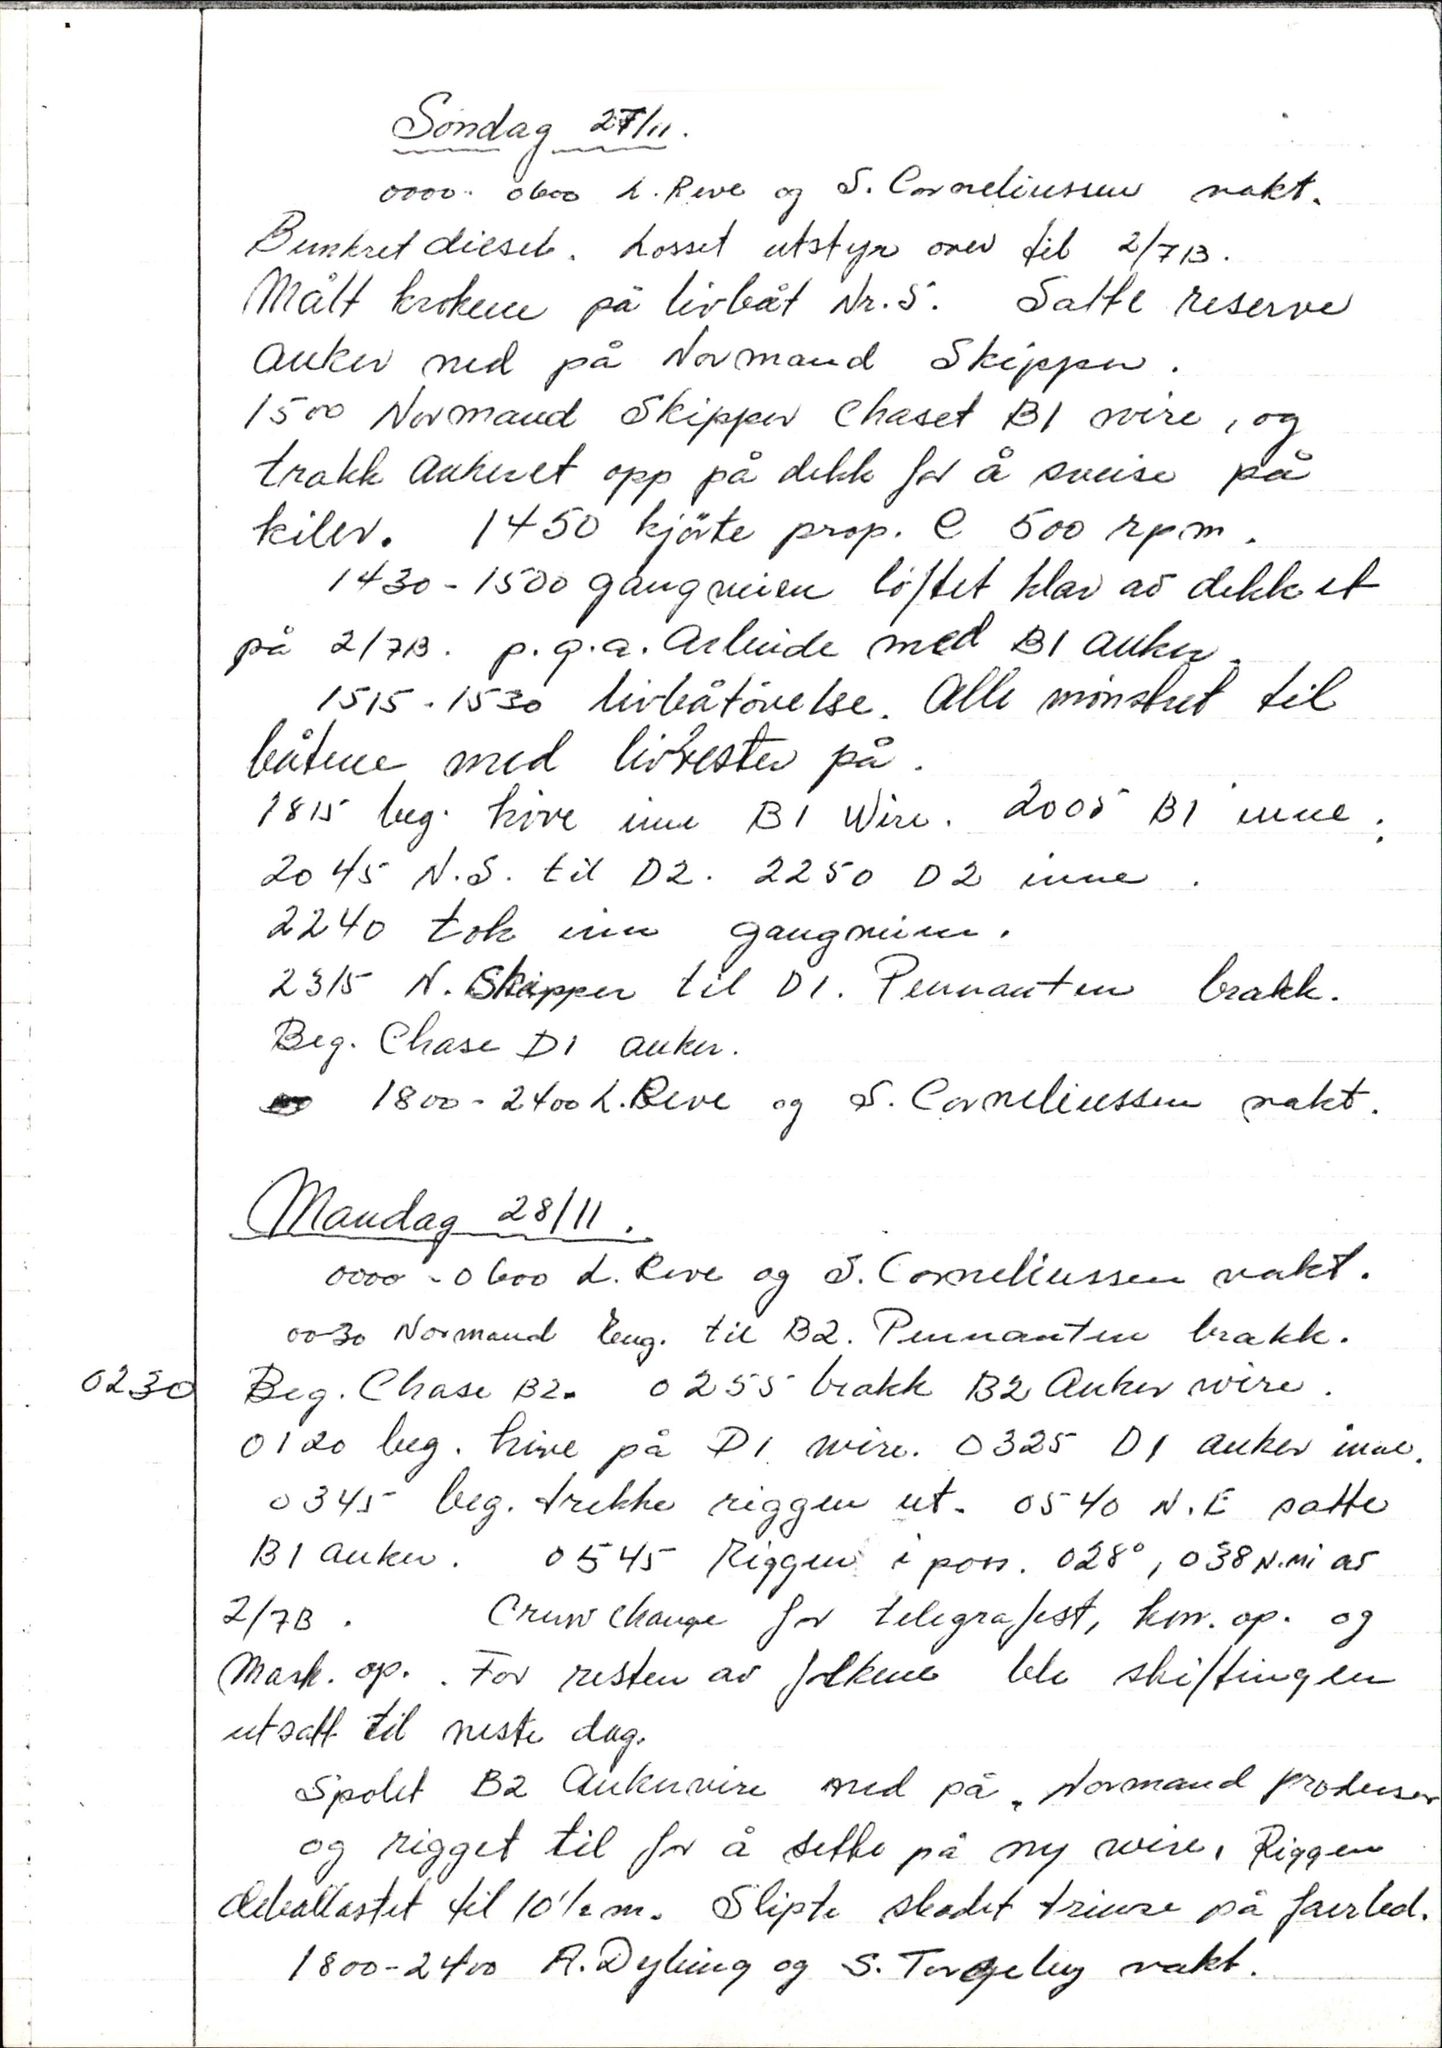 Søndag 27/11.
0000-0600 L. Reve og S. Corneliussen vakt.
Bunkret diesel. Losset utstyr over til 2/7B.
Målt krokene på livbåt Nr. 5. Satte reserve
anker ned på Normand Skipper.
1500 Normand Skipper Chaset B1 wire, og
trakk ankeret opp på dekk for å sveise på
kiler. 1450 kjørte prop. C 500 rpm.
1430-1500 gangveien løftet klar av dekket
på 2/7B. p.g.a. Arbeide med B1 anker.
1515-1530 livbåtövelse. Alle mønstret til
båtene med livvester på.
1815 beg. hive inn B1 Wire. 2005 B1 inne.
2045 N.S. til D2. 2250 D2 inne.
2240 tok inn gangveien.
2315 N. Skipper til D1. Pennanten brakk.
Beg. Chase D1 anker.
1800-2400 L. Reve og S. Corneliussen vakt.
Mandag 28/11.
0000-0600 L. Reve og S. Corneliussen vakt.
0030 Normand Eng. til B2. Pennanten brakk.
0230 Beg. Chase B2. 0255 brakk B2 Anker wire.
0120 beg. hive på D1 wire. 0325 D1 anker inne.
0345 beg. trekke riggen ut. 0540 N.E satte
B1 anker. 0545 Riggen i poss. 028°, 038 N.mi av
2/7B. Crew change for telegrafist, kon. op. og
Mask. op.. For resten av folkene ble skiftingen
utsatt til neste dag.
Spolet B2 Ankerwire ned på Normand Produser
og rigget til for å sette på ny wire. Riggen
deballastet til 10½ m. Slipte skadet trinse på fairled.
1800-2400 A. Dybing og S. vakt.